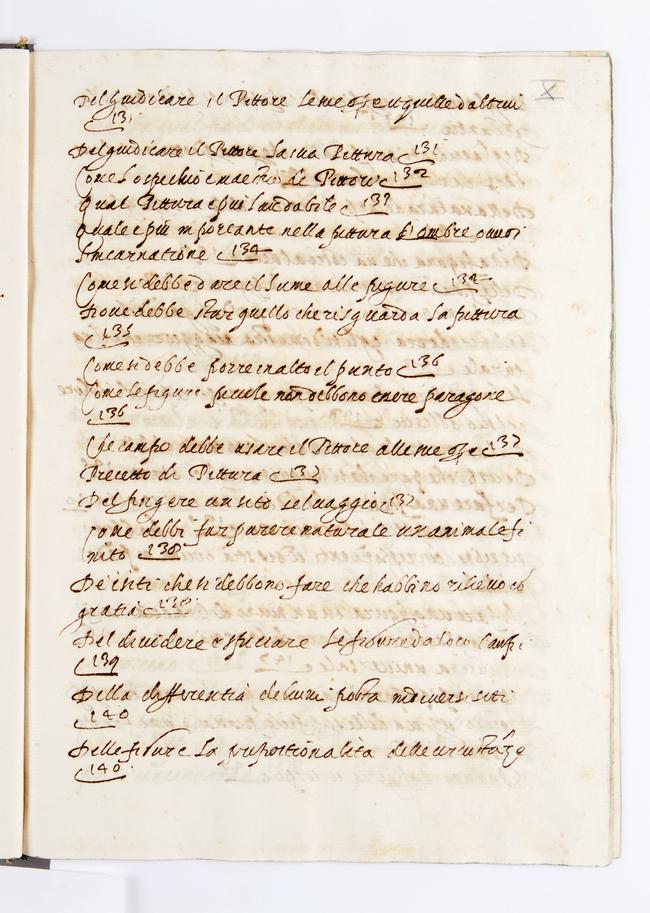 X
Del giudicare il Pittore le sue opere e quelle d altrui
131
Del giudicare il Pittore la sua Pittura 131
Come lo specchio è maestro de Pittori 132
Qual Pittura è piu laudabile 133
Quale è piu importante nella pittura l'ombre o suoi
l'incarnatione 134
Come si debbe dare il lume alle figure 134
Dove debbe star quello che risguarda la pittura
135
Come si debbe porre in alto il punto 136
Come le figure piccole non debbono havere paragone
136
Che campo debbe usare il Pittore alle sue opere 137
Precetto di Pittura 137
Del fingere un sito selvaggio 137
Come debbi far parere naturale un animale fi
nito 138
De siti che si debbono fare che habbino rilievo cõ
gratia 138
Del dividere e spiccare le figure da loro campi
139
Della differentia de lumi posta in diversi siti
140
Delle figure la proportionalita delle
140